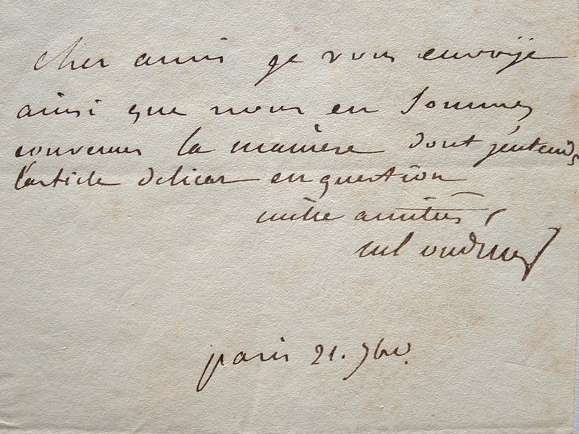 cher ami je vous envoije
ainsi que nous en sommes
convenus la manière dont j'entends
l'article délicat en question
mille amitiés,
paris 21. 9bre.